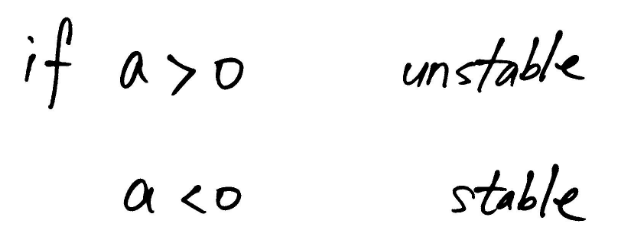 if a > 0 unstable
a < 0 stable